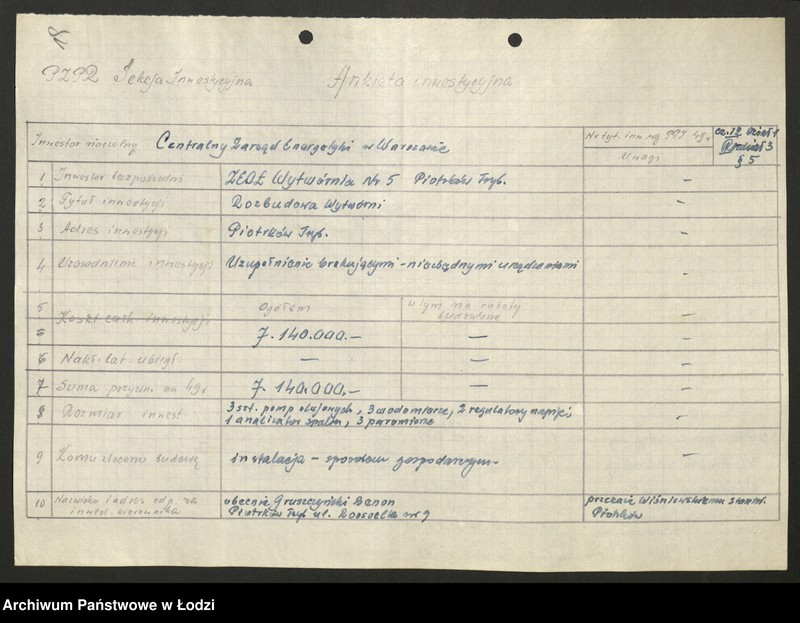 PZPR Sekcja Inwestycyjna
Ankieta inwestycyjna
Inwestor naczelny Centralny Zarząd Energetyki w Warszawie
Nr tyt. inw. wg PPJ 49 r.
cz. 19 Dział 1
Rozdział 3
§ 5
Uwagi
1 Inwestor bezpośredni ZEOŁ Wytwórnia Nr 5 Piotrków Tryb. —
2 Tytuł inwestycji Rozbudowa Wytwórni —
3 Adres inwestycji Piotrków Tryb. —
4 Uzasadnienie inwestycji Uzupełnienie brakującymi - niezbędnymi urządzeniami —
5 Koszt całk. inwestycji Ogółem w tym na roboty budowlane —
7.140.000.— — —
6 Nakł. lat ubiegł. — — —
7 Suma przyzn. na 49 r. 7.140.000.— — —
8 Rozmiar inwest. 3 szt. pomp olejowych, 3 wodomierze, 2 regulatory napięć,
1 analizator spalin, 3 paromierze —
9 Komu zlecono budowę instalacja - sposobem gospodarczym. —
10 Nazwisko i adres odp. za
inwest. kierownika
obecnie Gruszczyński Zenon
Piotrków Tryb. ul. Roosvelta nr 9
Wiśniewskiemu Stanisł.
Piotrków
Archiwum Państwowe w Łodzi